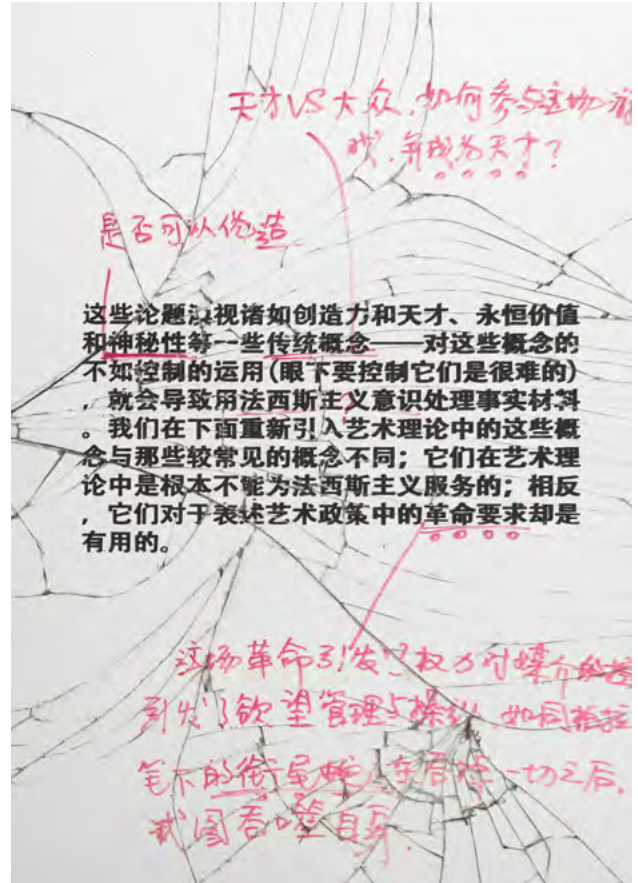 天才VS大众,如何参与这场游
戏,并成为天才?
是否可以伪造
这些论题漠视诸如创造力和天才、永恒价值
和神秘性等一些传统概念——对这些概念的
不如控制的运用(眼下要控制它们是很难的)
,就会导致用法西斯主义意识处理事实材料
。我们在下面重新引入艺术理论中的这些概
念与那些较常见的概念不同;它们在艺术理
论中是根本不能为法西斯主义服务的;相反
,它们对于表述艺术政策中的革命要求却是
有用的。
?
这场革命引发了权力对媒介的
引发了欲望管理与操纵,如同
笔下的衔尾蛇,在吞噬一切之后,
试图吞噬自身.